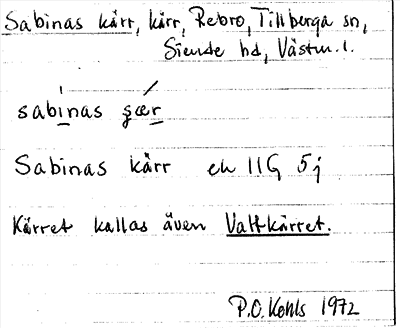 Sabinas kärr, kärr, Rebro, Tillberga sn,
Siende hd, Västm. l.
sabinas ȿær
Sabinas kärr ek 11G 5j
Kärret kallas även Valtkärret.
P.O. Kohls 1972